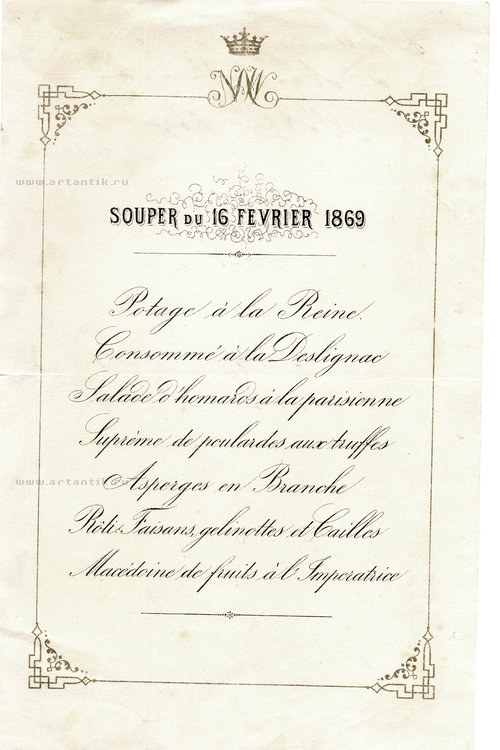 www.artantik.ru
SOUPER DU 16 FEVRIER 1869
Potage à la Reine.
Consommé à la Deslignac
Salade d'homards à la parisienne
Suprême de poulardes aux truffes
www.artantik.ru
Asperges en Branche
Rôti: Faisans, gelinottes et Cailles
Macédoine de fruits à l'Imperatrice